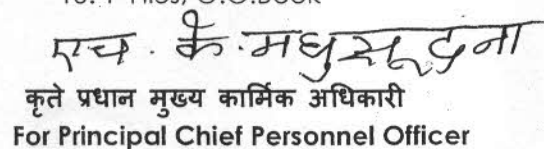 एच. के. मधुसूदना
कृते प्रधान मुख्य कार्मिक अधिकारी
For Principal Chief Personnel Officer